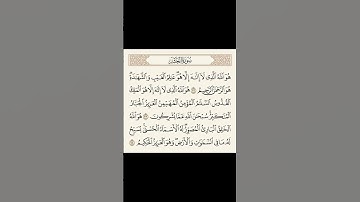 سورة الحشر
هُوَ اللَّهُ الَّذِي لَا إِلَٰهَ إِلَّا هُوَ عَالِمُ الْغَيْبِ وَالشَّهَادَةِ
هُوَ الرَّحْمَٰنُ الرَّحِيمُ ۝ هُوَ اللَّهُ الَّذِي لَا إِلَٰهَ إِلَّا هُوَ الْمَلِكُ
الْقُدُّوسُ السَّلَامُ الْمُؤْمِنُ الْمُهَيْمِنُ الْعَزِيزُ الْجَبَّارُ
الْمُتَكَبِّرُ سُبْحَانَ اللَّهِ عَمَّا يُشْرِكُونَ ۝ هُوَ اللَّهُ
الْخَالِقُ الْبَارِئُ الْمُصَوِّرُ لَهُ الْأَسْمَاءُ الْحُسْنَىٰ يُسَبِّحُ
لَهُ مَا فِي السَّمَاوَاتِ وَالْأَرْضِ وَهُوَ الْعَزِيزُ الْحَكِيمُ ۝